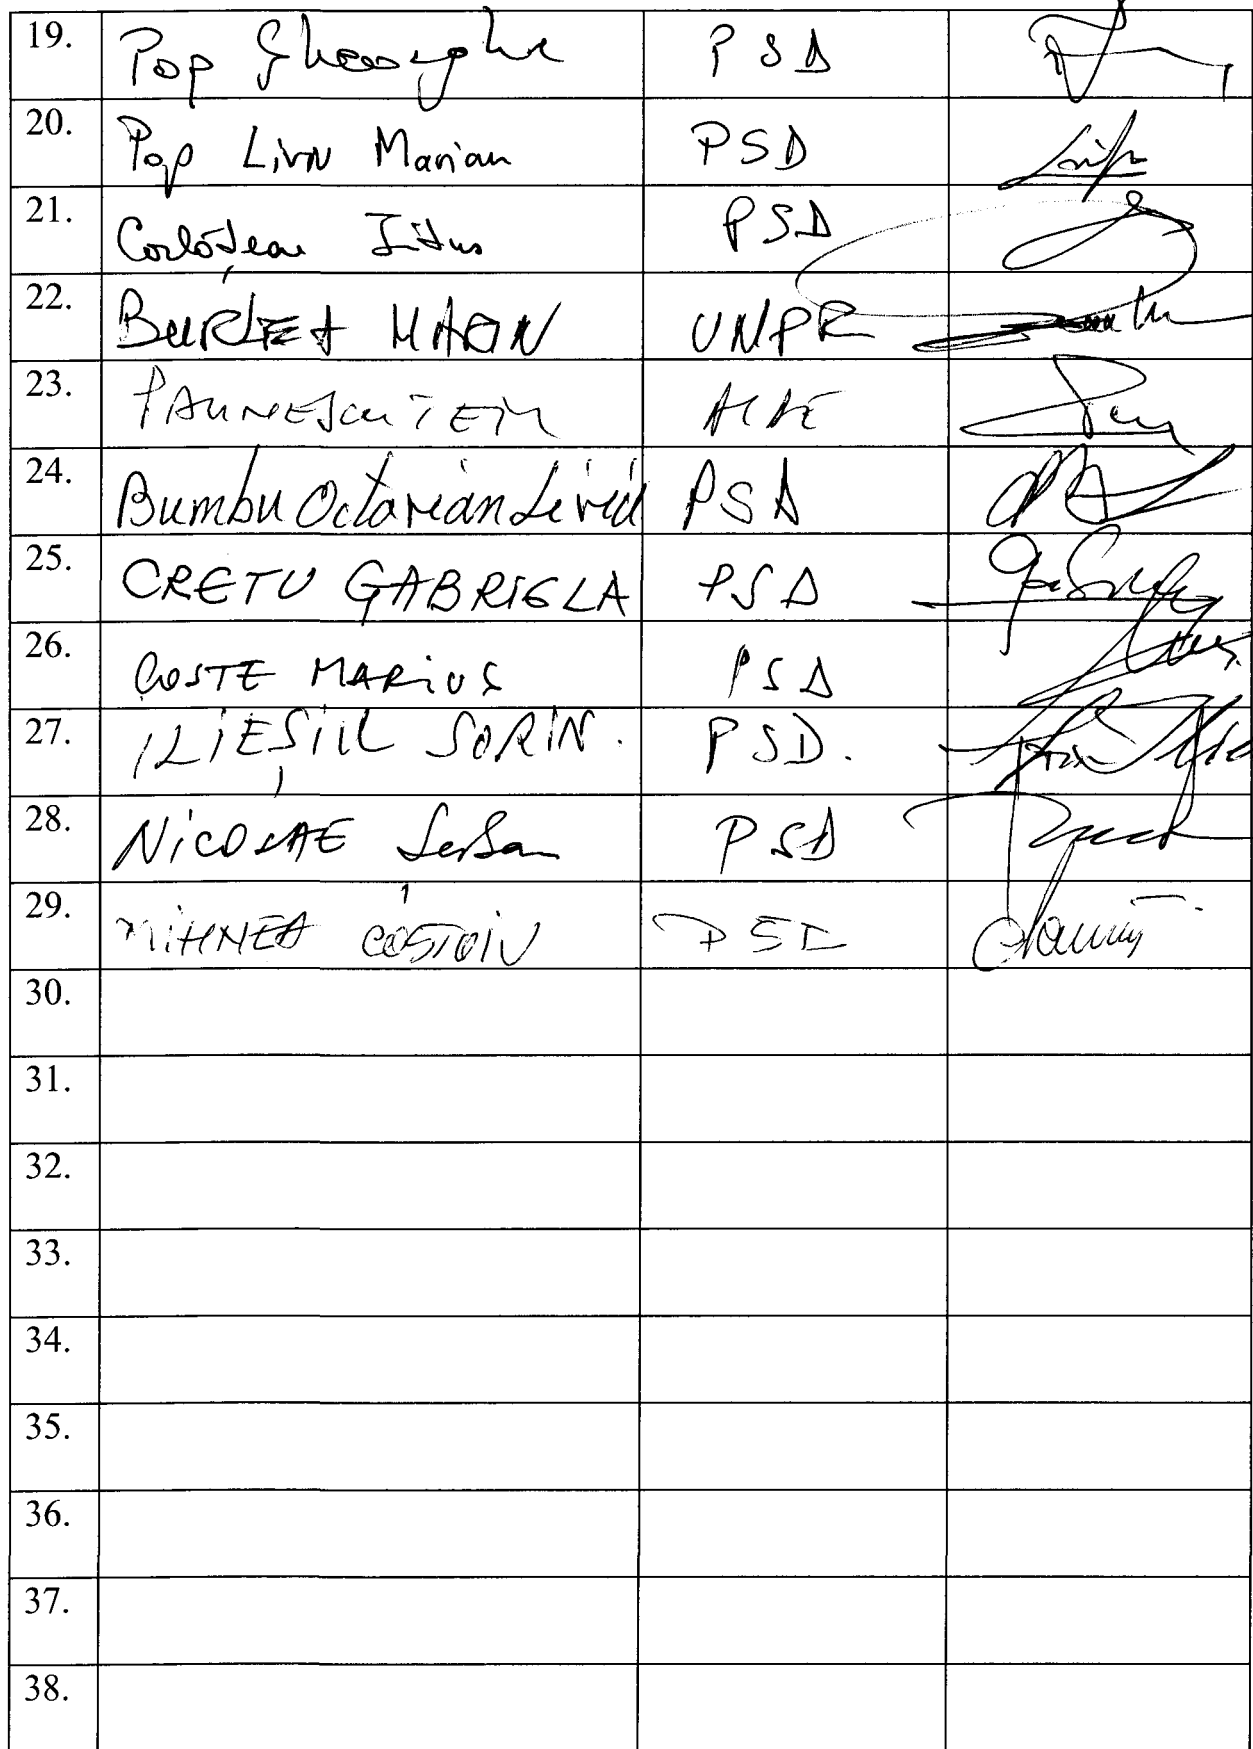 19. Pop Gheorghe PSD
20. Pop Liviu Marian PSD
21. Corlățean Titus PSD
22. BURLEA MARIN UNPR
23. PAUNESCU TEIU ALDE
24. Bumbu Octavian Liviu PSD
25. CRETU GABRIELA PSD
26. COSTE MARIUS PSD
27. ILIEȘIU SORIN. PSD.
28. NICOLAE Șerban PSD
29. MIHNEA COSTOIU PSD
30.
31.
32.
33.
34.
35.
36.
37.
38.